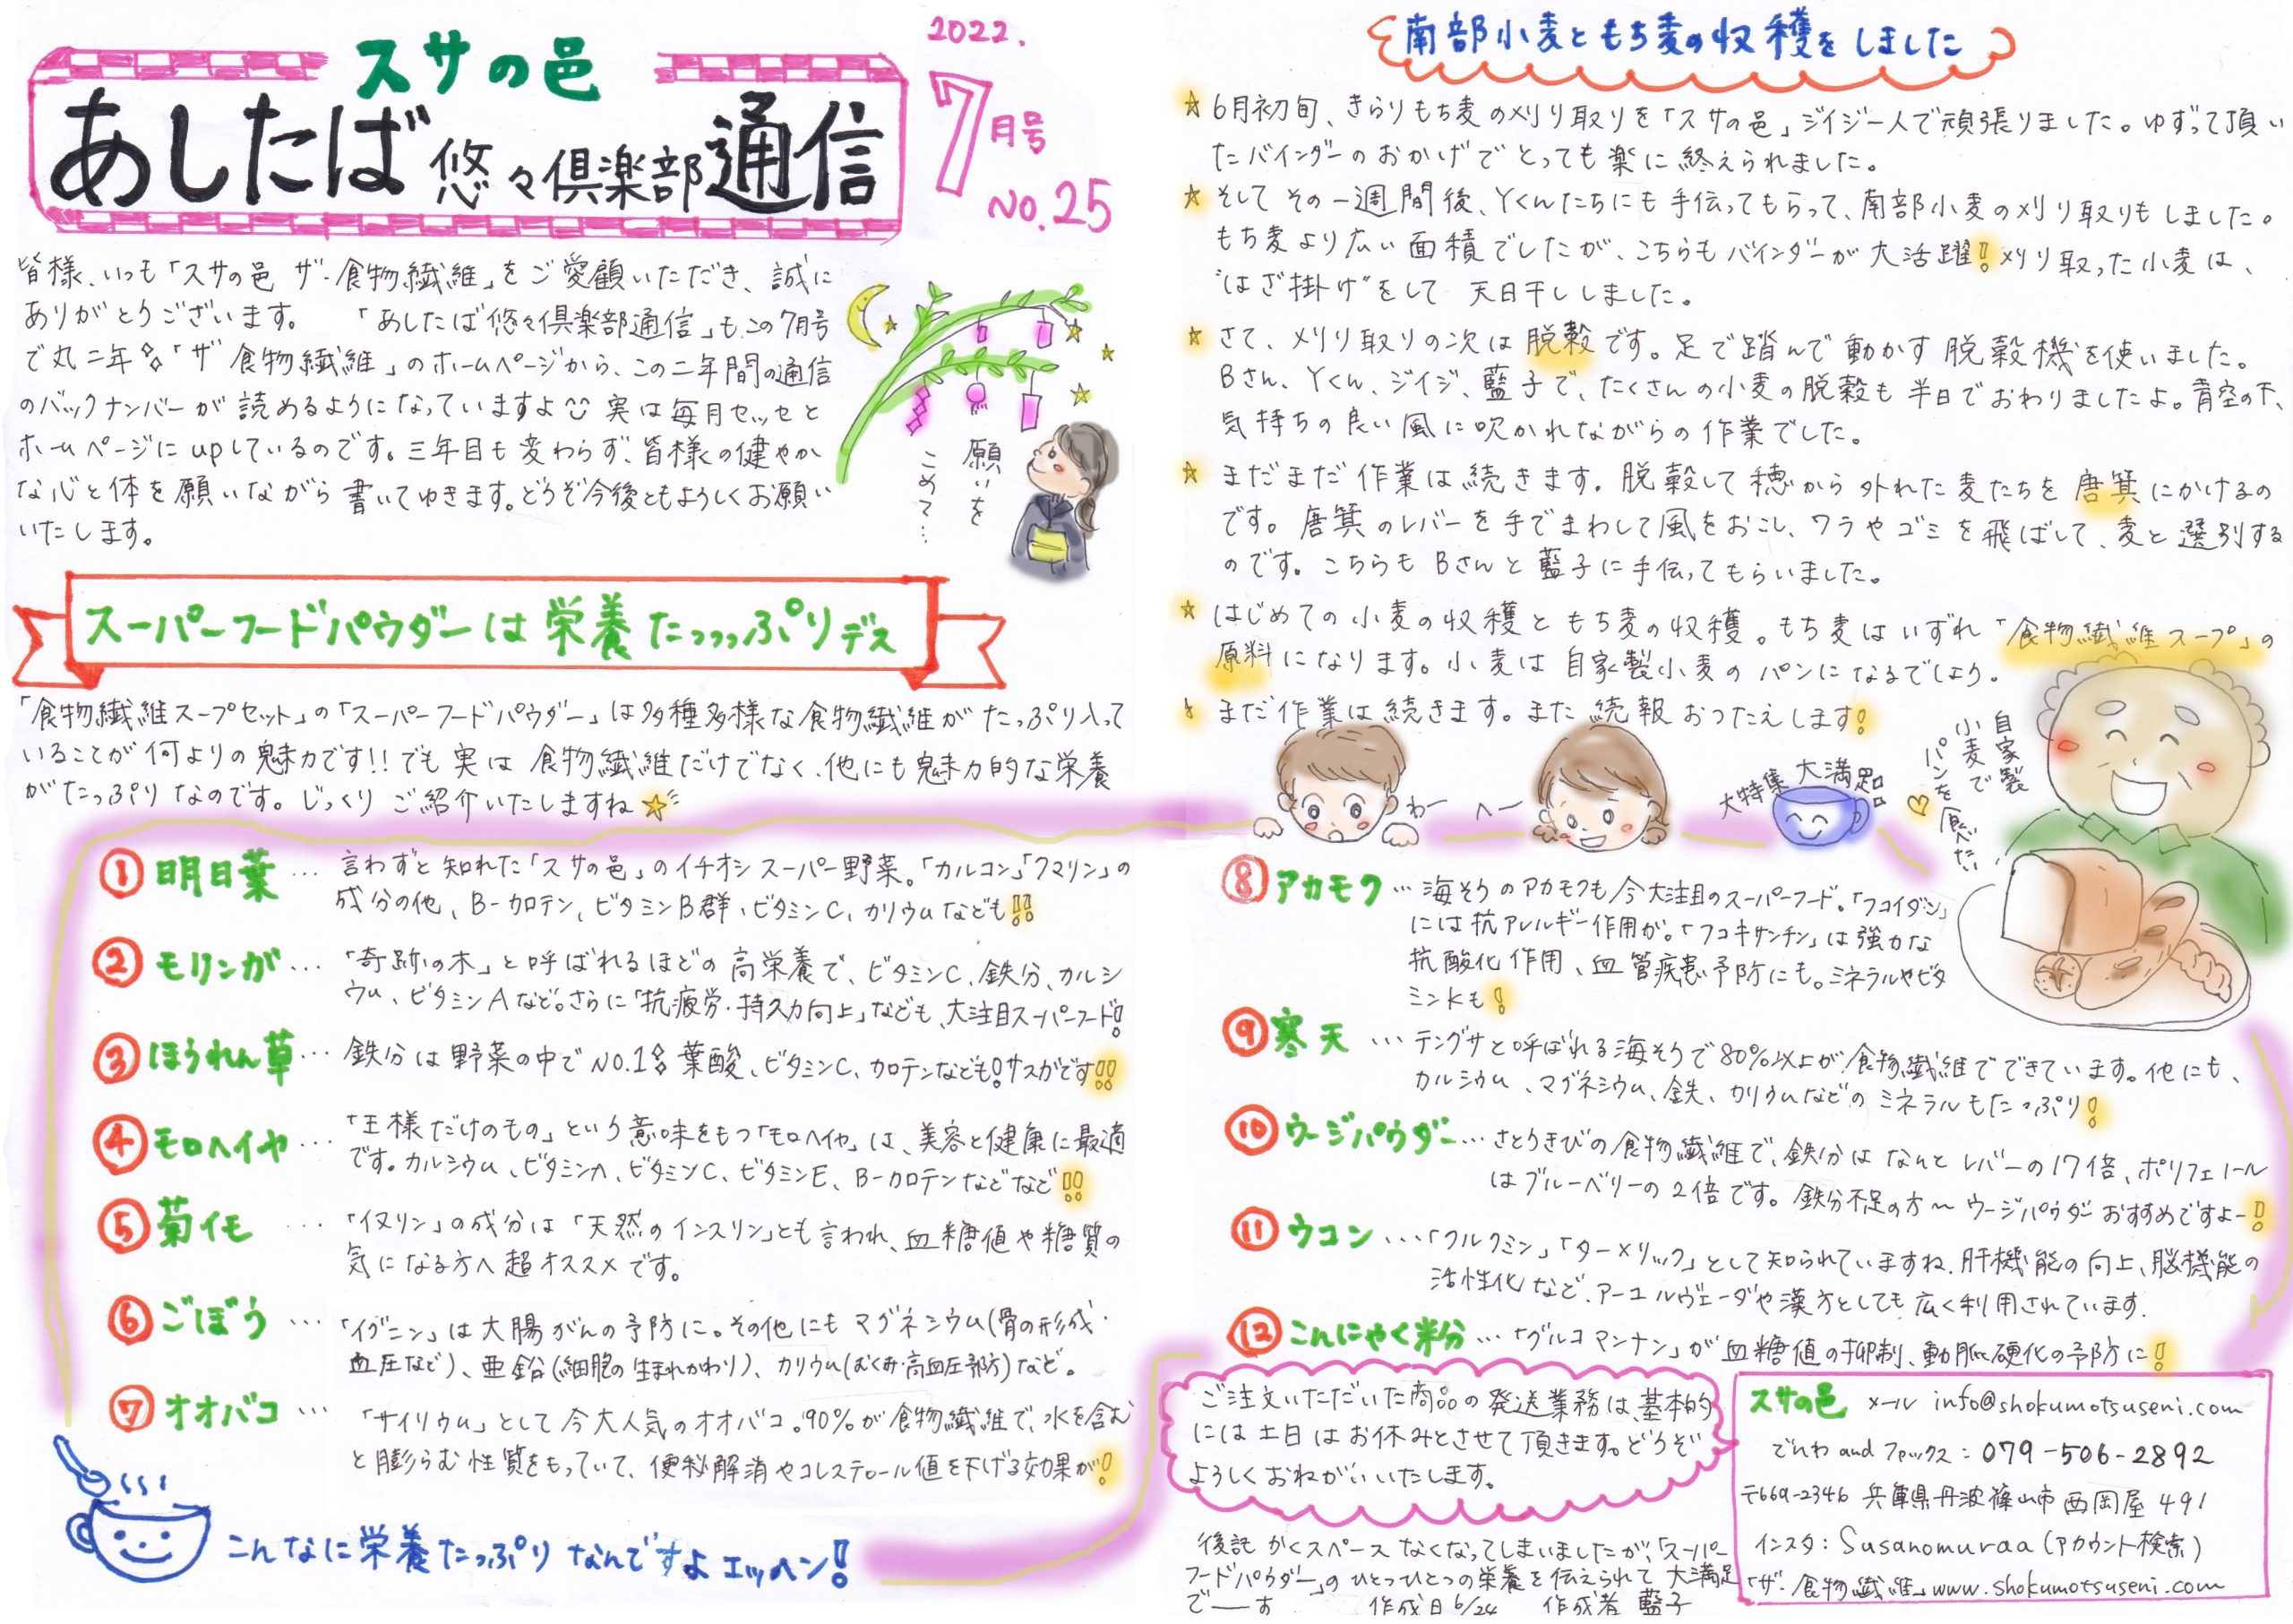 スサの邑
あしたば悠々倶楽部通信
2022.
7月号
No.25
皆様、いつも「スサの邑 ザ・食物繊維」をご愛顧いただき、誠に
ありがとうございます。 「あしたば悠々倶楽部通信」も、この7月号
で丸二年!「ザ 食物繊維」のホームページから、この二年間の通信
のバックナンバーが読めるようになっていますよ 実は毎月セッセと
ホームページにupしているのです。三年目も変わらず、皆様の健やか
な心と体を願いながら書いてゆきます。どうぞ今後ともよろしくお願い
いたします。
願いを
こめて…
スーパーフードパウダーは栄養たっっっぷりデス
「食物繊維スープセット」の「スーパーフードパウダー」は多種多様な食物繊維がたっぷり入って
いることが何よりの魅力です!!でも実は食物繊維だけでなく、他にも魅力的な栄養
がたっぷりなのです。じっくりご紹介いたしますね☆
①明日葉… 言わずと知れた「スサの邑」のイチオシスーパー野菜。「カルコン」「クマリン」の
成分の他、B-カロテン、ビタミンB群、ビタミンC、カリウムなども!!
②モリンガ… 「奇跡の木」と呼ばれるほどの高栄養で、ビタミンC、鉄分、カルシ
ウム、ビタミンAなど。さらに「抗疲労・持久力向上」なども、大注目スーパーフード!
③ほうれん草… 鉄分は野菜の中でNO.1! 葉酸、ビタミンC、カロテンなども!サスがです!!
④モロヘイヤ… 「王様だけのもの」という意味をもつ「モロヘイヤ」は、美容と健康に最適
です。カルシウム、ビタミンA、ビタミンC、ビタミンE、B-カロテンなどなど!!
⑤菊イモ … 「イヌリン」の成分は「天然のインスリン」とも言われ、血糖値や糖質の
気になる方へ超オススメです。
⑥ごぼう … 「イグニン」は大腸がんの予防に。その他にもマグネシウム(骨の形成・
血圧など)、亜鉛(細胞の生まれかわり)、カリウム(むくみ・高血圧予防)など。
⑦オオバコ … 「サイリウム」として今大人気のオオバコ。90%が食物繊維で、水を含む
と膨らむ性質をもっていて、便秘解消やコレステロール値を下げる効果が!
こんなに栄養たっぷりなんですよエッヘン!
南部小麦ともち麦の収穫をしました
☆6月初旬、きらりもち麦の刈り取りを「スサの邑」ジイジ一人で頑張りました。ゆずって頂い
たバインダーのおかげでとっても楽に終えられました。
☆そしてその一週間後、Yくんたちにも手伝ってもらって、南部小麦の刈り取りもしました。
もち麦より広い面積でしたが、こちらもバインダーが大活躍!刈り取った小麦は、
“はざ掛け”をして天日干ししました。
☆さて、刈り取りの次は脱穀です。足で踏んで動かす脱穀機を使いました。
Bさん、Yくん、ジイジ、藍子で、たくさんの小麦の脱穀も半日でおわりましたよ。青空の下、
気持ちの良い風に吹かれながらの作業でした。
☆まだまだ作業は続きます。脱穀して穂から外れた麦たちを唐箕にかけるの
です。唐箕のレバーを手でまわして風をおこし、ワラやゴミを飛ばして、麦と選別する
のです。こちらもBさんと藍子に手伝ってもらいました。
☆はじめての小麦の収穫ともち麦の収穫。もち麦はいずれ「食物繊維スープ」の
原料になります。小麦は自家製小麦のパンになるでしょう。
☆まだ作業は続きます。また続報おつたえします!
わー
へー
大特集大満足!!
自家製
小麦で
パンを食べたい
⑧アカモク… 海そうのアカモクも今大注目のスーパーフード。「フコイダン」
には抗アレルギー作用が。「フコキサンチン」は強力な
抗酸化作用、血管疾患予防にも。ミネラルやビタ
ミンKも!
⑨寒天 … テングサと呼ばれる海そうで80%以上が食物繊維でできています。他にも、
カルシウム、マグネシウム、鉄、カリウムなどのミネラルもたっぷり!
⑩ウージパウダー… さとうきびの食物繊維で、鉄分はなんとレバーの17倍、ポリフェノール
はブルーベリーの2倍です。鉄分不足の方〜ウージパウダーおすすめですよー!
⑪ウコン… 「クルクミン」「ターメリック」として知られていますね、肝機能の向上、脳機能の
活性化など、アーユルヴェーダや漢方としても広く利用されています。
⑫こんにゃく粉… 「グルコマンナン」が血糖値の抑制、動脈硬化の予防に!
ご注文いただいた商品の発送業務は、基本的
には土日はお休みとさせて頂きます。どうぞ
よろしくおねがいいたします。
後記 かくスペースなくなってしまいましたが、「スーパー
フードパウダー」のひとつひとつの栄養を伝えられて大満足
で――す 作成日6/24 作成者 藍子
スサの邑 メール info@shokumotsuseni.com
でんわ and ファックス：079-506-2892
〒669-2346 兵庫県丹波篠山市西岡屋491
インスタ：Susanomuraa(アカウント検索)
「ザ・食物繊維」www.shokumotsuseni.com